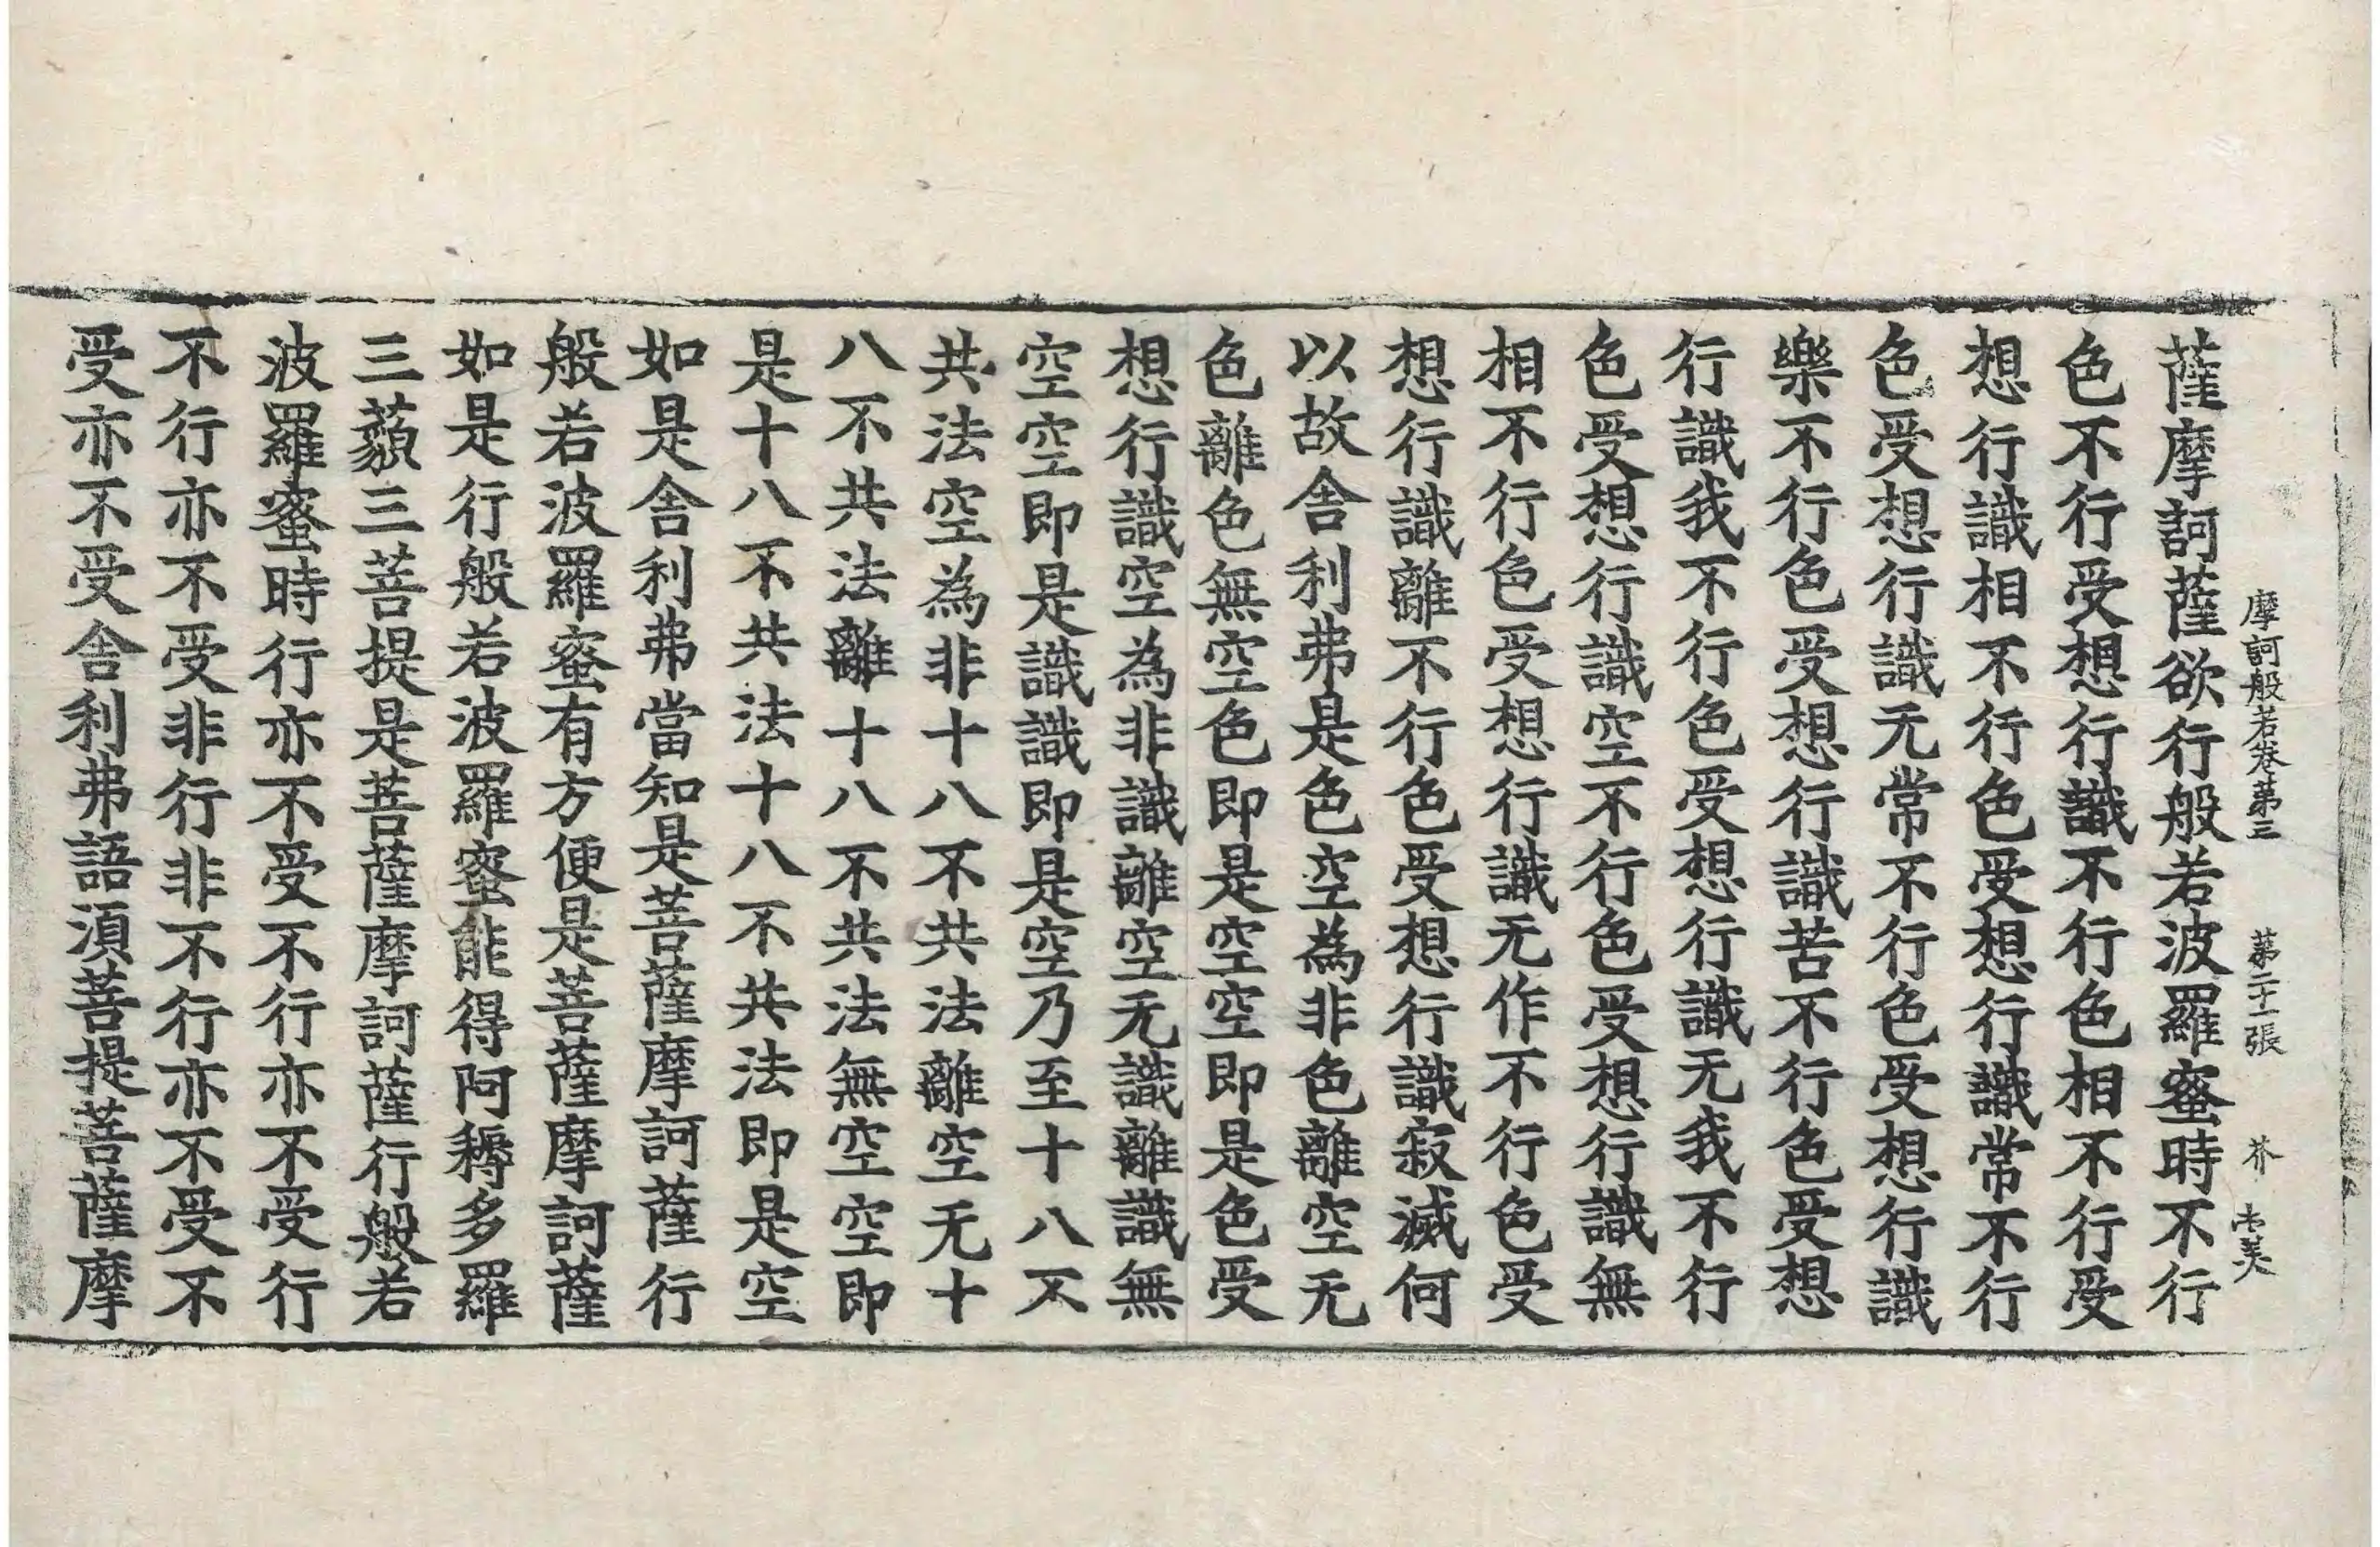 摩訶般若卷第三 第二十一張 芥
薩摩訶薩欲行般若波羅蜜時不行
色不行受想行識不行色相不行受
想行識相不行色受想行識常不行
色受想行識无常不行色受想行識
樂不行色受想行識苦不行色受想
行識我不行色受想行識无我不行
色受想行識空不行色受想行識無
相不行色受想行識无作不行色受
想行識離不行色受想行識寂滅何
以故舍利弗是色空為非色離空无
色離色無空色即是空空即是色受
想行識空為非識離空无識離識無
空空即是識識即是空乃至十八不
共法空為非十八不共法離空无十
八不共法離十八不共法無空空即
是十八不共法十八不共法即是空
如是舍利弗當知是菩薩摩訶薩行
般若波羅蜜有方便是菩薩摩訶薩
如是行般若波羅蜜能得阿耨多羅
三藐三菩提是菩薩摩訶薩行般若
波羅蜜時行亦不受不行亦不受行
不行亦不受非行非不行亦不受不
受亦不受舍利弗語湏菩提菩薩摩